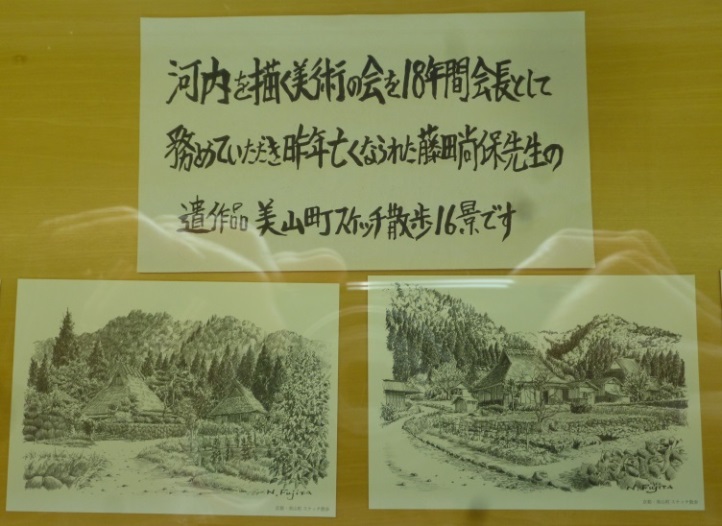 河内を描く美術の会を18年間会長として
務めていただき昨年亡くなられた藤田尚保先生の
遺作品 美山町スケッチ散歩16景です
H. Fujita
H. Fujita